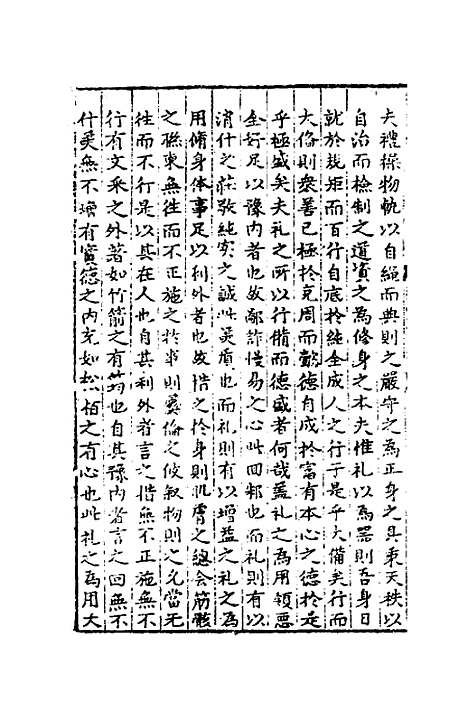 夫禮操物軌以自繩而典則之嚴守之為正身之具秉天秩以
自治而檢制之道資之為修身之本夫惟礼以為器則吾身日
就於規矩而百行自底於純全成人之行于是乎大備矣行而
大脩則衆善已極於充周而懿德自成於富有本心之德於是
乎極盛矣夫礼之所以行脩而德盛者何哉蓋礼之為用領惡
全好足以豫內者也故鄙詐慢易之心此回邪也而礼則有以
消什之莊敬純实之誠此美質也而礼則有以增益之礼之為
用脩身体事足以利外者也故措之於身則肌膚之總会筋骸
之聮束無徃而不正施之於事則彛倫之攸敘物則之允當无
徃而不行是以其在人也自其利外者言之措無不正施無不
行有文釆之外著如竹箭之有筠也自其豫內者言之回無不
什美無不增有實德之內充如松栢之有心也此礼之為用大